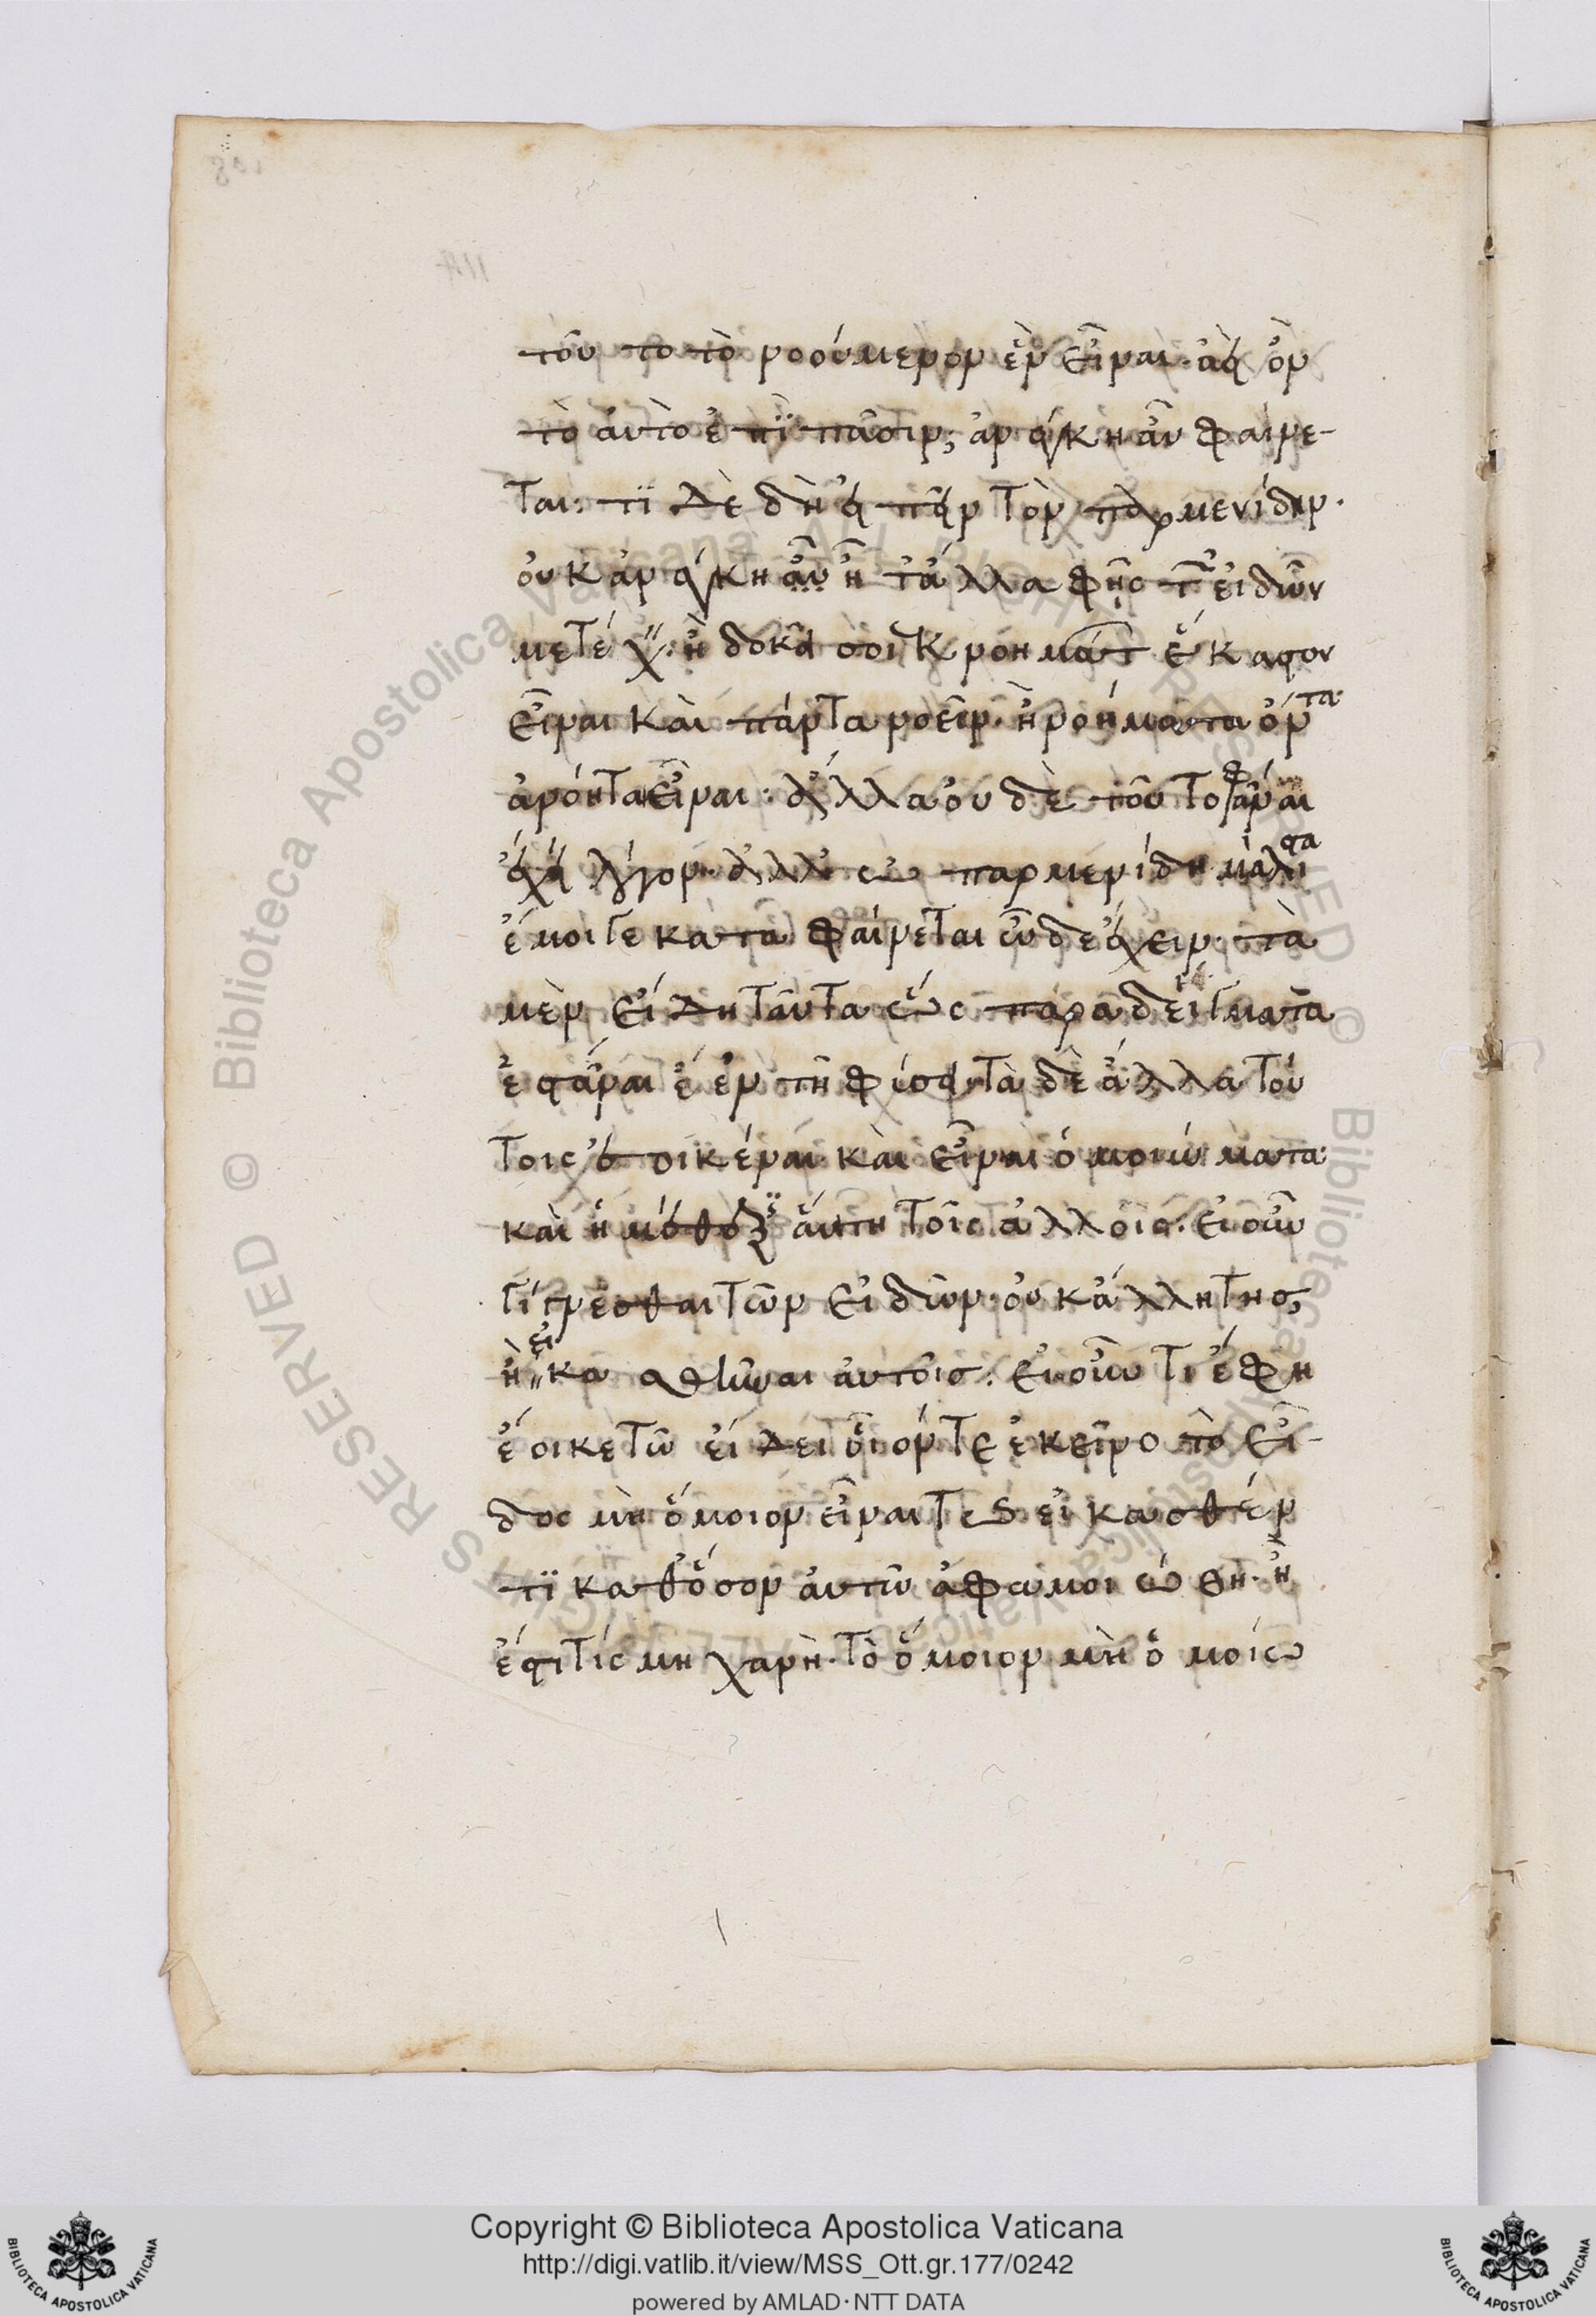 τοῦτο τὸ νοούμενον ἓν εἶναι· ἀεὶ ὂν
τὸ ἀυτὸ ἐπὶ πᾶσιν; ἀνάγκη ἂυ φαίνε-
ται: τί δὲ δὴ εἰπεῖν τὸν παρμενίδην·
οὐκ ἀνάγκη ἂυ ἢ τἄλλα φῂς τῶν εἰδῶν
μετέχειν: ἢ δοκεῖ σοι ἐκ νοημάτων ἕκαστον
εἶναι καὶ πάντα νοεῖν· ἢ νοήματα ὄντα·
ἀνόητα εἶναι: ἀλλὰ οὐδὲ τοῦτο φάναι
ἔχει λόγον· ἀλλ' ὦ παρμενίδη μάλιστα
ἔμοιγε καταφαίνεται ὧδε ἔχειν· τὰ
μὲν εἴδη ταῦτα ὥς παραδείγματα
ἑστάναι ἐν τῇ φύσει· τὰ δὲ ἄλλα τού
τοις ἐοικέναι καὶ εἶναι ὁμοιώματα·
καὶ ἡ μέθεξις ἅυτη τοῖς ἄλλοις· εἰ οὖν
γίγνεσθαι τῶν εἰδῶν· οὐκ ἄλλη τις,
ἢ εἰκασθῆναι ἀυτοῖς: εἰ οὖν τι ἔφη
ἔοικε τῶ εἴδει οἷόν τε ἐκεῖνο τὸ εἶ-
δος μὴ ὅμοιον εἶναι τῶ εἰκασθέν
τι καθόσον ἀυτῶ ἀφωμοιώθη· ἢ
ἔστι τίς μηχανὴ· τὸ ὅμοιον μὴ ὁμοίω
Copyright © Biblioteca Apostolica Vaticana
http://digi.vatlib.it/view/MSS_Ott.gr.177/0242
powered by AMLAD·NTT DATA